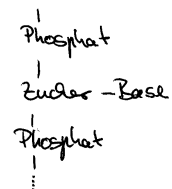 Phosphat
Zucker - Base
Phosphat